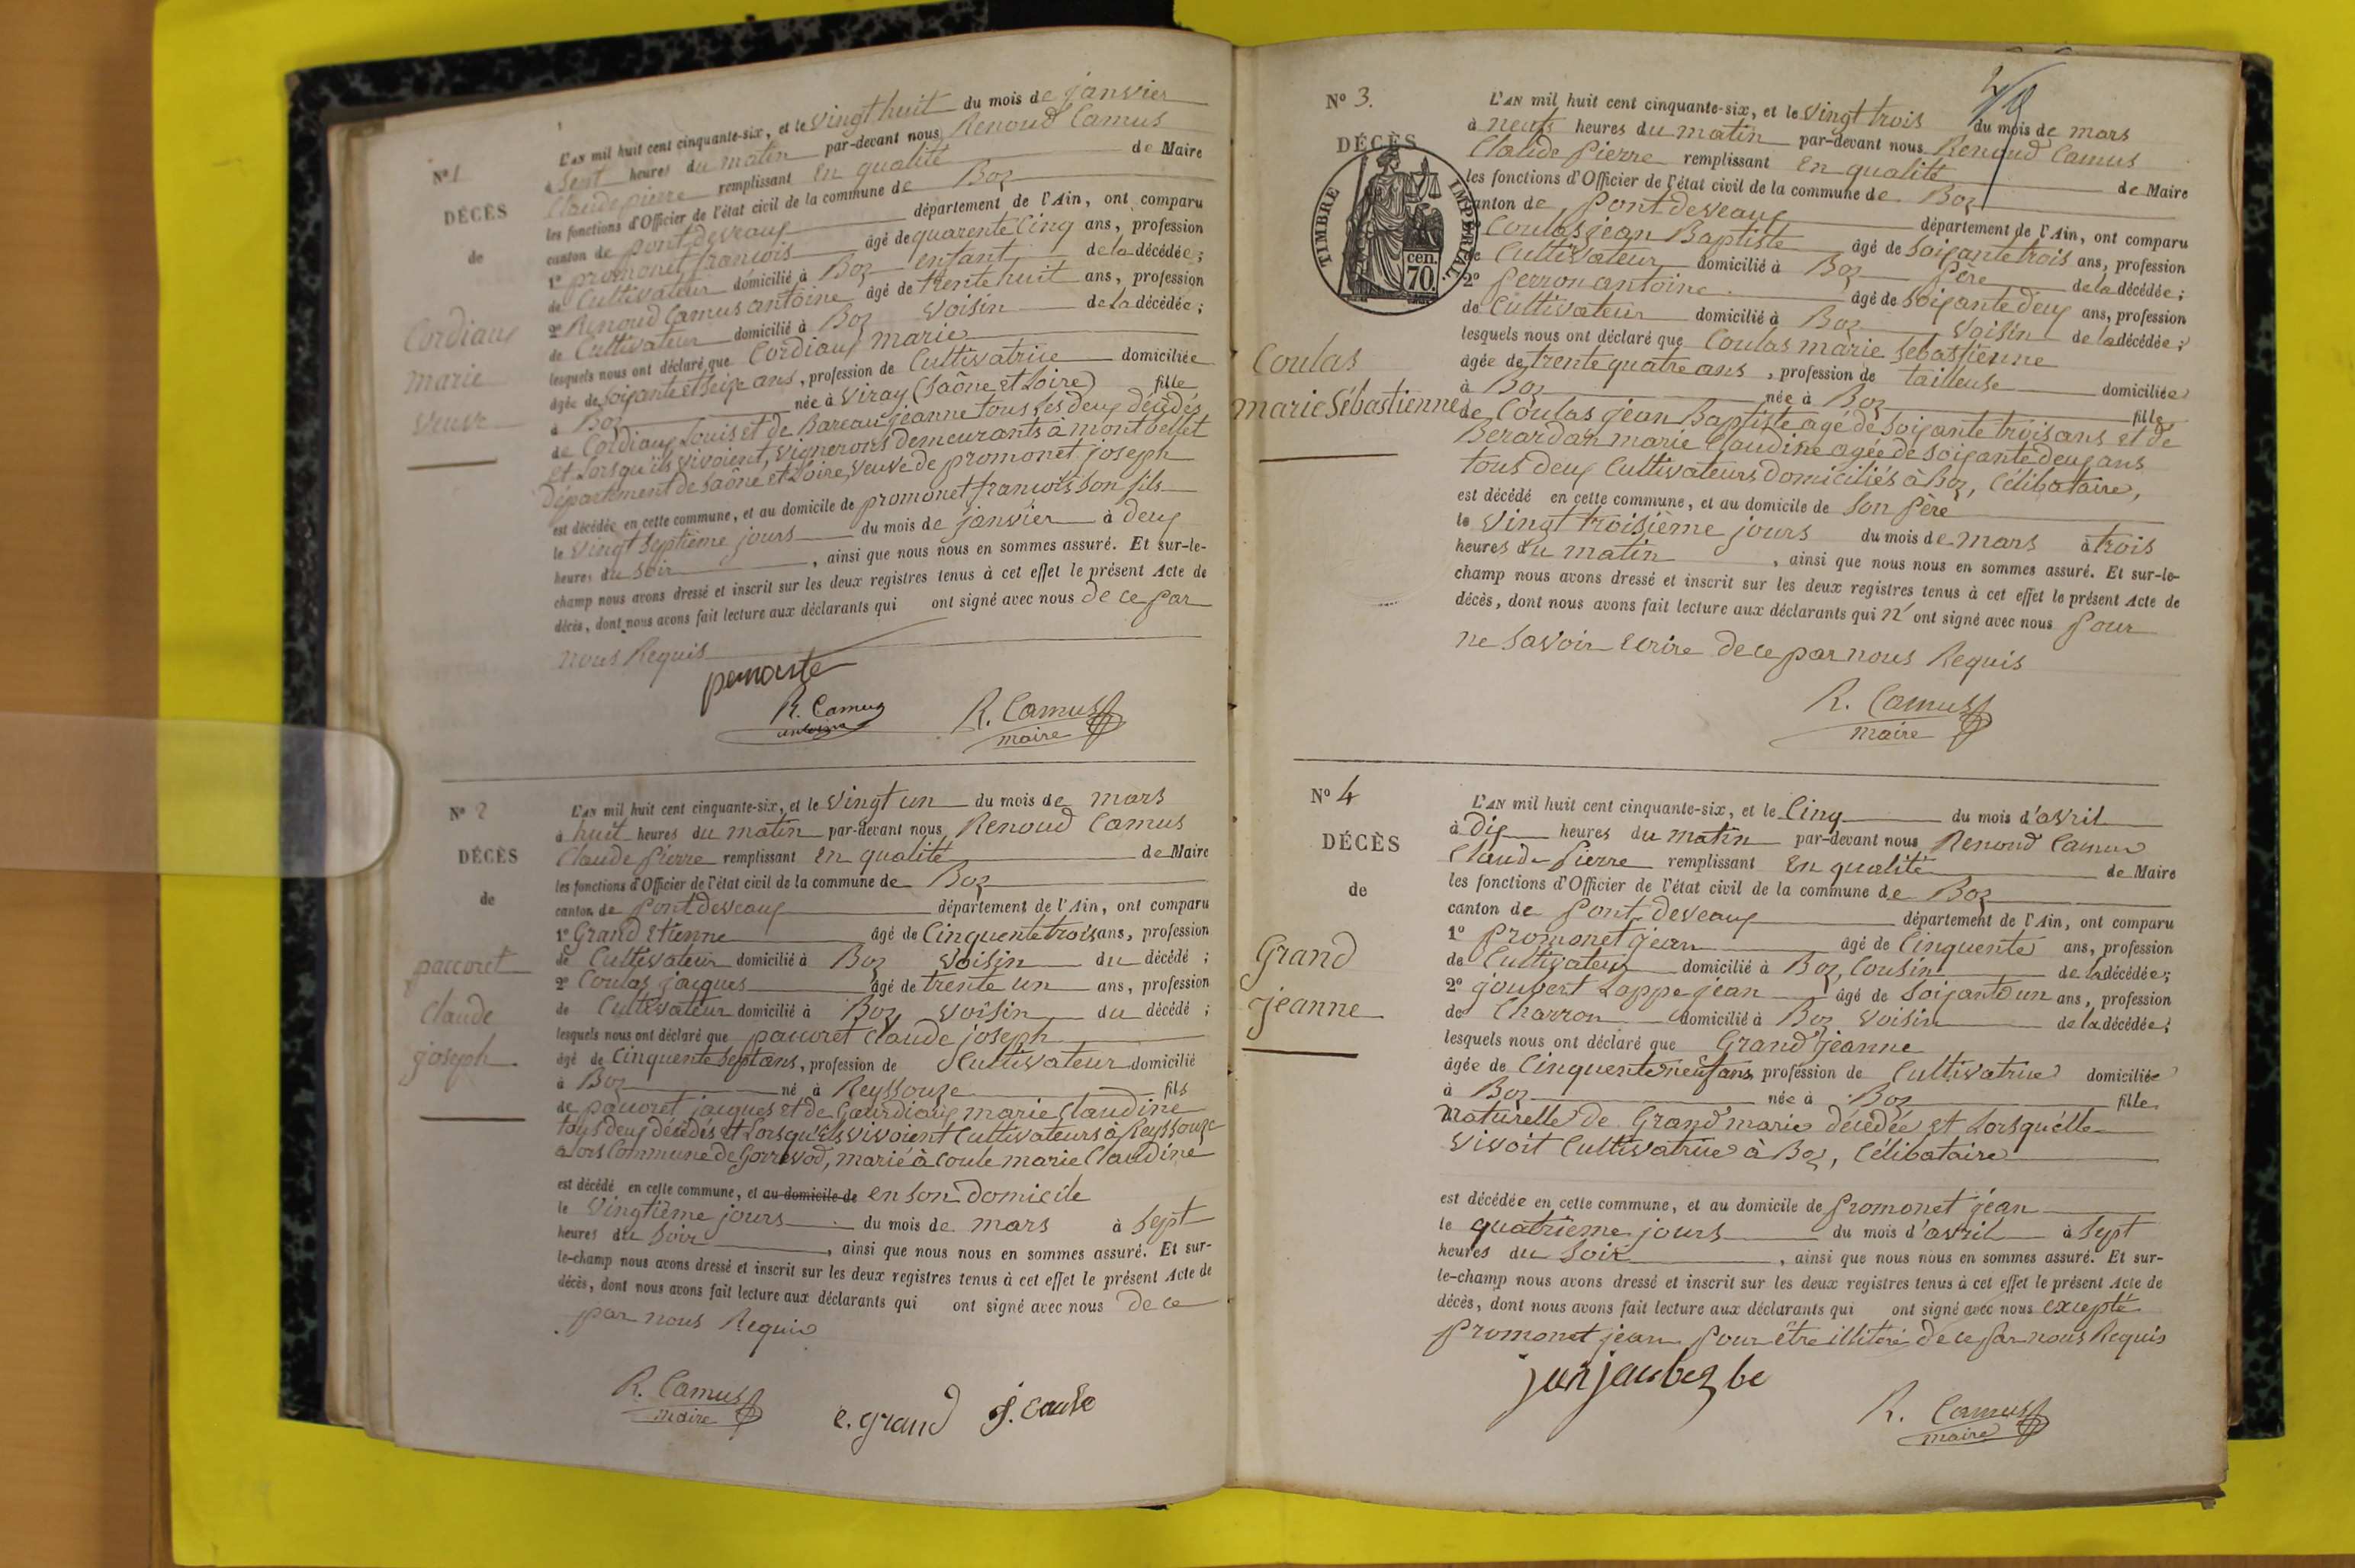 N° 1
DÉCÈS
de
Cordiaux
marie
veuve
L'AN mil huit cent cinquante-six, et le vingt huit du mois de janvier
à Sept heures du matin par-devant nous Renoud Camus
Claude pierre remplissant en qualité de Maire
les fonctions d'Officier de l'état civil de la commune de Boz
canton de pontdevaux département de l'Ain, ont comparu
1° promonet francois âgé de quarente cinq ans, profession
de Cultivateur domicilié à Boz enfant de la décédée;
2° Renoud Camus antoine âgé de trente huit ans, profession
de Cultivateur domicilié à Boz voisin de la décédée;
lesquels nous ont déclaré que Cordiaux marie
âgée de soixante et seize ans, profession de Cultivatrice domiciliée
à Boz née à viray (Saône et Loire) fille
de Cordiaux Louis et de Bareau jeanne tous les deux décédés
et Lorsqu'ils vivoient, vignerons demeurants à montbellet
Département de Saône et Loire, veuve de promonet joseph
est décédée en cette commune, et au domicile de promonet francois son fils
le vingt septième jours du mois de janvier à deux
heures du soir, ainsi que nous nous en sommes assuré. Et sur-le-
champ nous avons dressé et inscrit sur les deux registres tenus à cet effet le présent Acte de
décès, dont nous avons fait lecture aux déclarants qui ont signé avec nous de ce par
nous Requis
R. Camus
antoine
R. Camus
maire
N° 2
DÉCÈS
de
paccoret
Claude
joseph
L'AN mil huit cent cinquante-six, et le vingt un du mois de mars
à huit heures du matin par-devant nous Renoud Camus
Claude Pierre remplissant en qualité de Maire
les fonctions d'Officier de l'état civil de la commune de Boz
canton de Pontdeveaux département de l'Ain, ont comparu
1° Grand Etienne âgé de Cinquente trois ans, profession
de Cultivateur domicilié à Boz voisin du décédé;
2° Coulas jacques âgé de trente un ans, profession
de Cultivateur domicilié à Boz, voisin du décédé;
lesquels nous ont déclaré que paccoret Claude joseph
âgé de Cinquente Sept ans, profession de Cultivateur domicilié
à Boz né à Reyssouze fils
de paccoret jacques et de Gourdiaux marie Claudine
tous deux décédés et Lorsqu'ils vivoient Cultivateurs à Reyssouze
alors Commune de Gorrevod, marié à Coule marie Claudine
est décédé en cette commune, et au domicile de en son domicile
le vingtième jours du mois de mars à sept
heures du soir, ainsi que nous nous en sommes assuré. Et sur-
le-champ nous avons dressé et inscrit sur les deux registres tenus à cet effet le présent Acte de
décès, dont nous avons fait lecture aux déclarants qui ont signé avec nous de ce
par nous Requis
R. Camus
maire
e. grand
N° 3.
DÉCÈS
TIMBRE IMPÉRIAL
cen.
70.
Coulas
marie Sébastienne
L'AN mil huit cent cinquante-six, et le vingt trois du mois de mars
à neufs heures du matin par-devant nous Renoud Camus
Claude Pierre remplissant en qualité de Maire
les fonctions d'Officier de l'état civil de la commune de Boz
canton de Pontdeveaux département de l'Ain, ont comparu
Coulas jean Baptiste âgé de Soixante trois ans, profession
de Cultivateur domicilié à Boz Père de la décédée;
2° Perron antoine âgé de soixante deux ans, profession
de Cultivateur domicilié à Boz voisin de la décédée;
lesquels nous ont déclaré que Coulas marie Sébastienne
âgée de trente quatre ans, profession de tailleuse domiciliée
à Boz née à Boz fille
de Coulas jean Baptiste agé de Soixante trois ans et de
Berardan marie Claudine agée de soixante deux ans
tous deux Cultivateurs domiciliés à Boz, Célibataire,
est décédé en cette commune, et au domicile de Son Père
le vingt troisième jours du mois de mars à trois
heures du matin, ainsi que nous nous en sommes assuré. Et sur-le-
champ nous avons dressé et inscrit sur les deux registres tenus à cet effet le présent Acte de
décès, dont nous avons fait lecture aux déclarants qui n'ont signé avec nous Pour
ne Savoir ecrire de ce par nous Requis
R. Camus
maire
N° 4
DÉCÈS
de
Grand
jeanne
L'AN mil huit cent cinquante-six, et le Cinq du mois d'avril
à Dix heures du matin par-devant nous Renoud Camus
Claude Pierre remplissant en qualité de Maire
les fonctions d'Officier de l'état civil de la commune de Boz
canton de Pont deveaux département de l'Ain, ont comparu
1° Promonet jean âgé de Cinquente ans, profession
de Cultivateur domicilié à Boz, Cousin de la décédée;
2° joubert Lappe jean âgé de Soixante un ans, profession
de Charron domicilié à Boz voisin de la décédée;
lesquels nous ont déclaré que Grand jeanne
âgée de Cinquente neuf ans profession de Cultivatrice domiciliée
à Boz née à Boz fille
naturelle de Grand marie décédée et Lorsqu'elle
vivoit Cultivatrice à Boz, Célibataire
est décédée en cette commune, et au domicile de Promonet jean
le quatrieme jours du mois d'avril à Sept
heures du Soir, ainsi que nous nous en sommes assuré. Et sur-
le-champ nous avons dressé et inscrit sur les deux registres tenus à cet effet le présent Acte de
décès, dont nous avons fait lecture aux déclarants qui ont signé avec nous excepté
Promonet jean Pour être illiteré de ce par nous Requis
R. Camus
maire